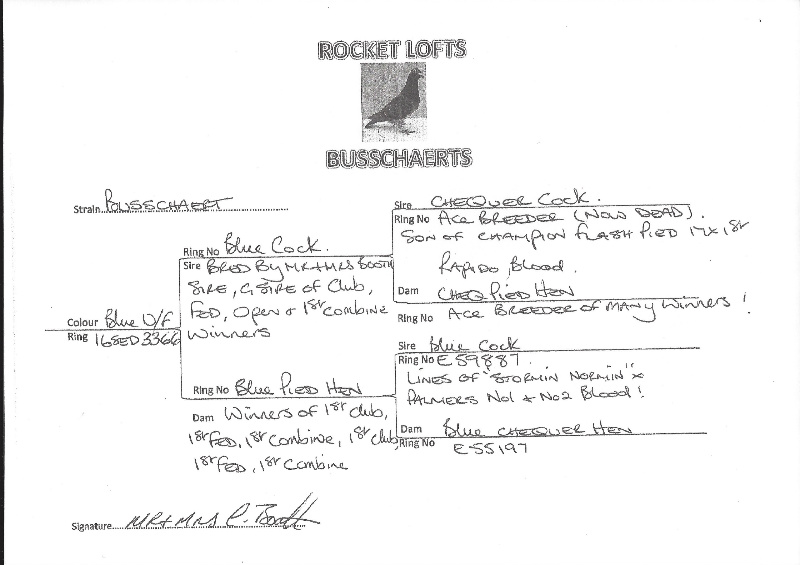 ROCKET LOFTS
BUSSCHAERTS
Strain BUSSCHAERT
Colour Blue W/F
Ring 16SED3366
Ring No Blue Cock.
Sire BRED By MR+MRS BOOTH
SIRE, G, SIRE of Club,
FED, OPEN & 1st Combine
Winners
Ring No Blue PIED HEN
Dam Winners of 1st Club,
1st FED, 1st Combine, 1st Club
1st FED, 1st Combine
Sire CHEQUER COCK.
Ring No Ace BREEDER (NOW DEAD).
SON OF CHAMPION FLASH PIED 17x1st
RAPIDO Blood.
Dam CHEQ PIED HEN
Ring No ACE BREEDER OF MANY Winners!
Sire Blue Cock
Ring No E59887.
LINES OF "STORMIN NORMIN" x
PALMERS No1 & No2 Blood!
Dam Blue CHEQUER HEN
Ring No E55197
Signature MR+MRS P. Booth